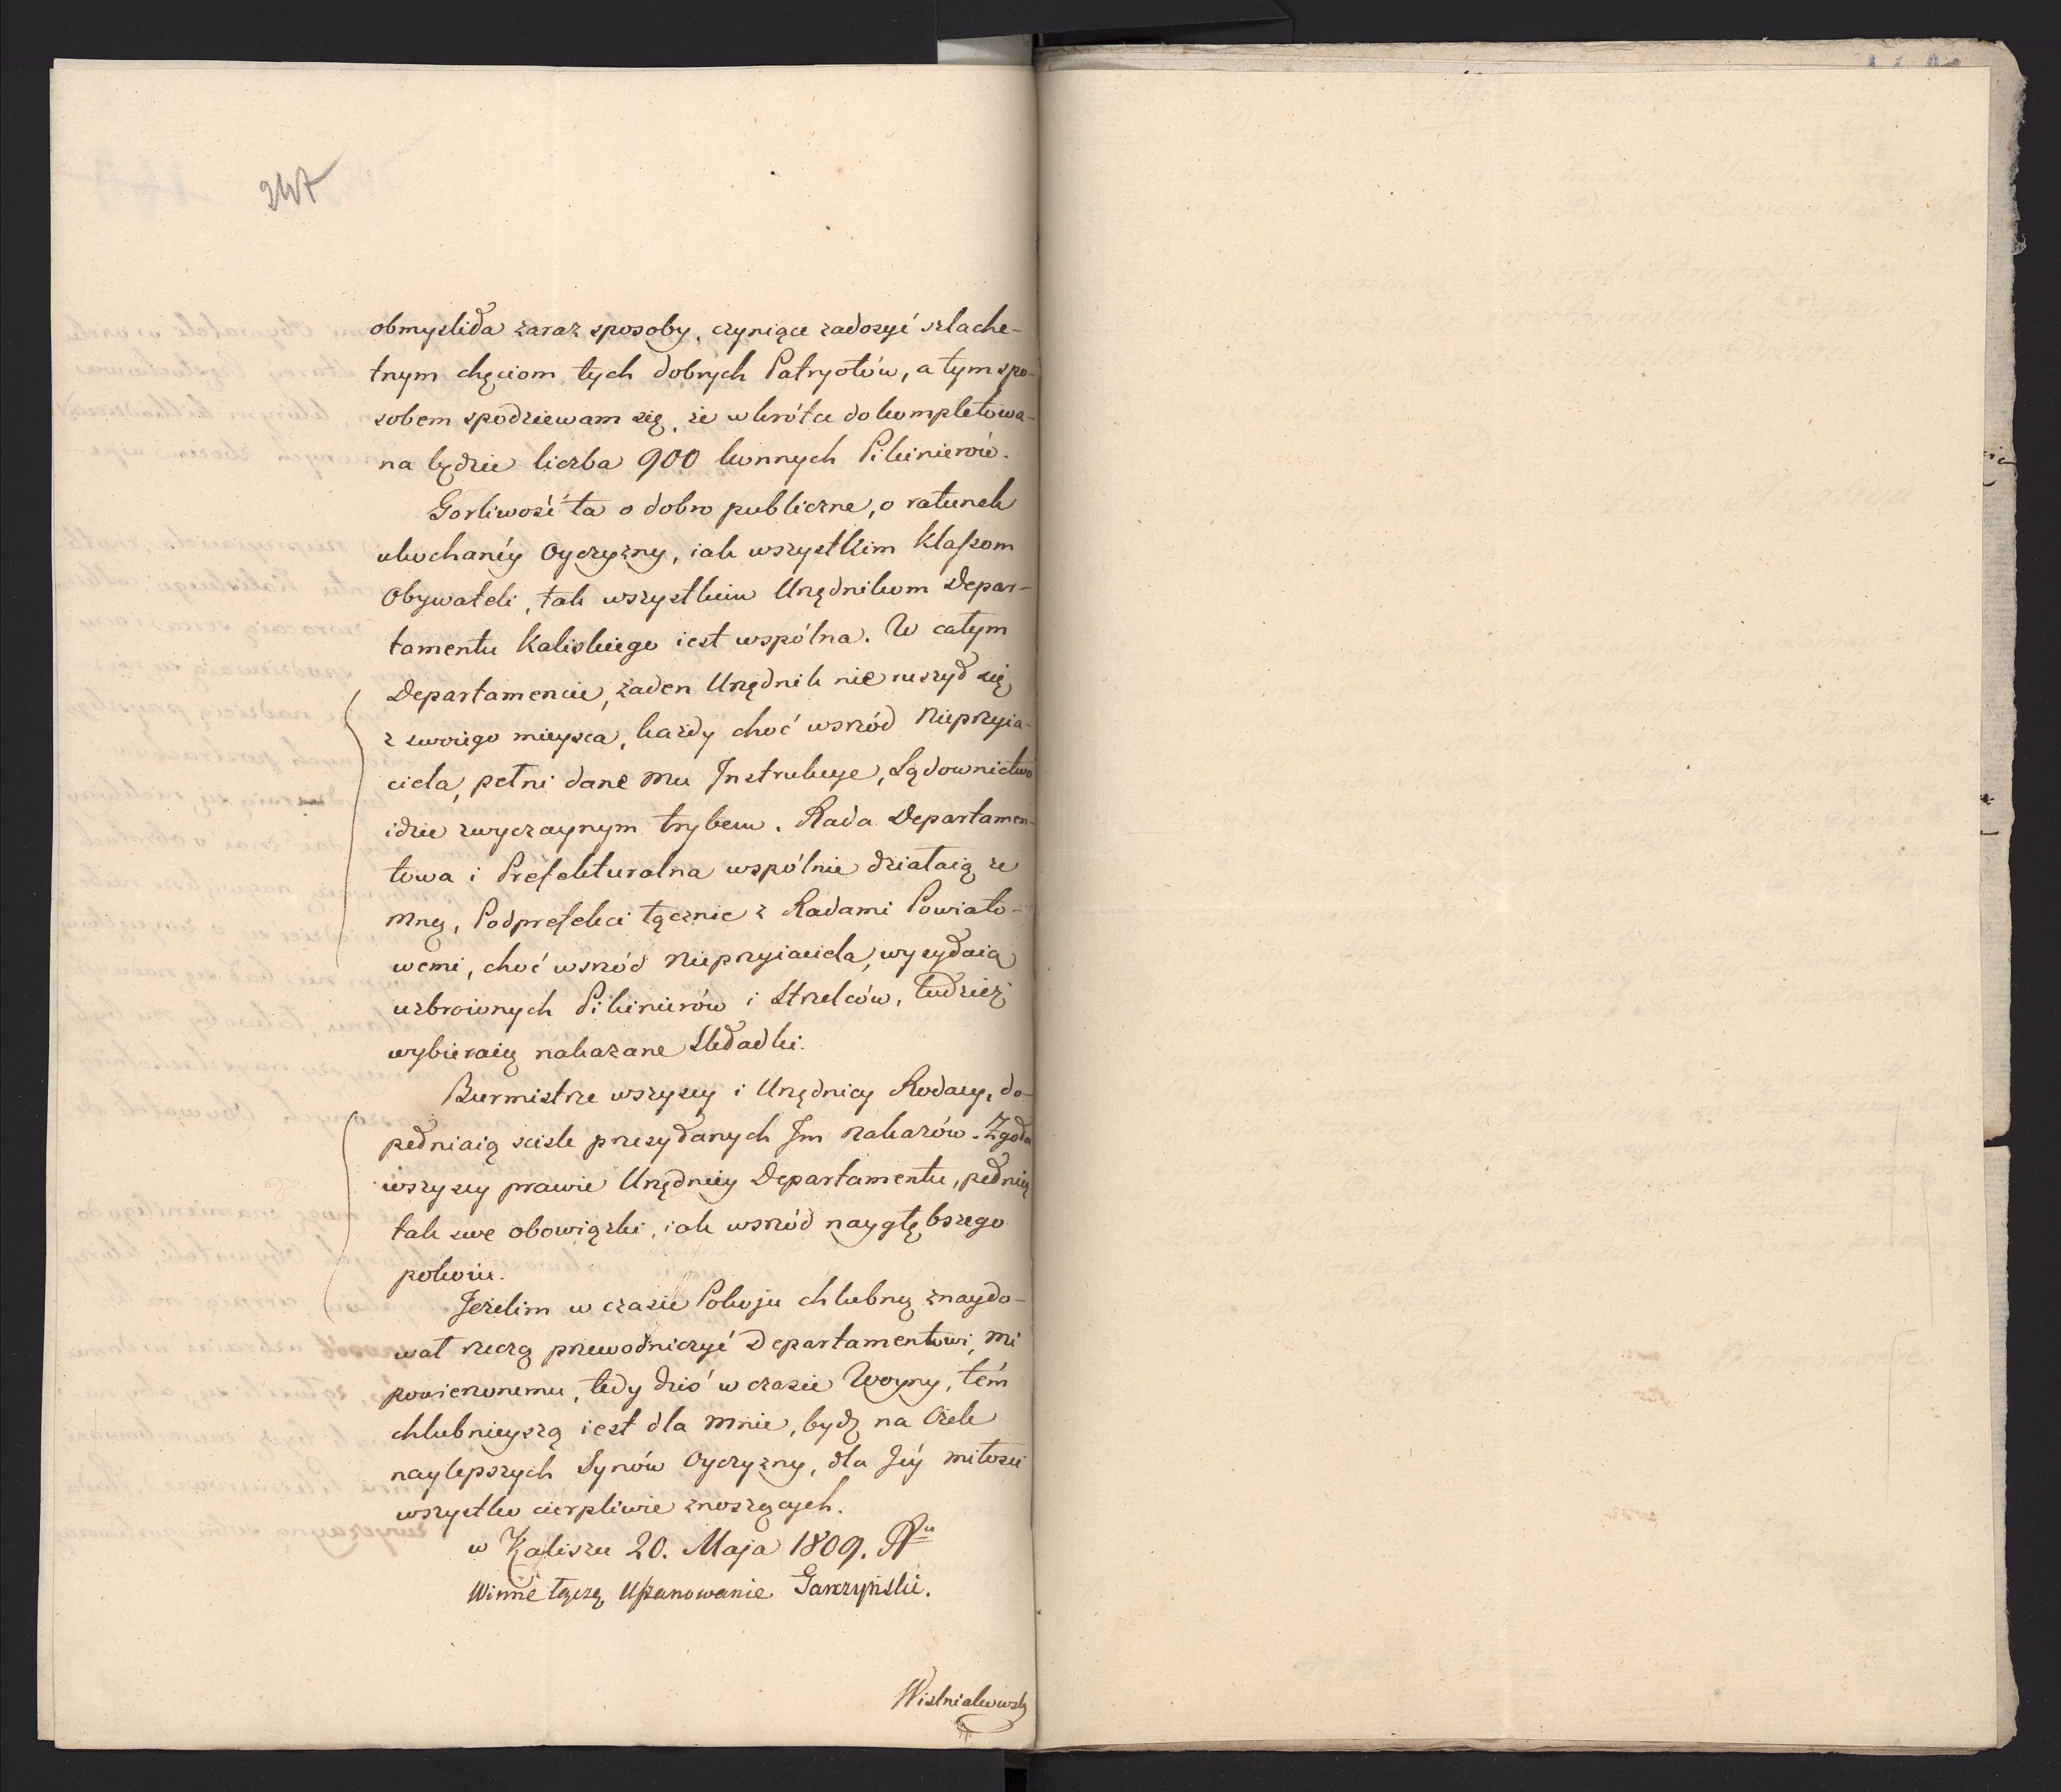 247
obmyśliła zaraz sposoby, czyniące zadosyć szlache-
tnym chęciom tych dobrych Patryotów, a tym spo-
sobem spodziewam się, że wkrótce dokompletowa-
na będzie liczba 900 konnych Pikinierów.
Gorliwość ta o dobro publiczne, o ratunek
ukochanéy Oyczyzny, iak wszystkim Klaſsom
Obywateli, tak wszystkim Urzędnikom Depar-
tamentu Kaliskiego iest wspólna. W całym
Departamencie, żaden Urzędnik nie ruszył się
z swoiego mieysca, każdy choć wsród Nieprzyia-
ciela, pełni dane mu Instrukcye, Sądownictwo
idzie zwyczaynym trybem. Rada Departamen-
towa i Prefekturalna wspólnie działaią ze
mną, Podprefekci łącznie z Radami Powiato-
wemi, choć wsród Nieprzyiaciela, wysyłaią
uzbroionych Pikinierów i Strzelców, tudzież
wybieraią nakazane Składki.
Burmistrze wszyscy i Urzędnicy Rodacy, do-
pełniaią scisle przesyłanych Im Nakazów. Zgoła
wszyscy prawie Urzędnicy Departamentu, pełnią
tak swe obowiązki, iak wsród naygłębszego
pokoiu.
Jeżelim w czasie Pokoju chlubną znaydo-
wał rzeczą przewodniczyć Departamentowi, mi
powierzonemu, tedy dziś w czasie Woyny, tém
chlubnieyszą iest dla mnie, bydź na Czele
naylepszych Synów Oyczyzny, dla Jéy miłości
wszystko cierpliwie znoszących.
w Kaliszu 20. Maja 1809. R<sup>u</sup>
Winne łączę Uszanowanie Garczyński.
Wiśniakowski